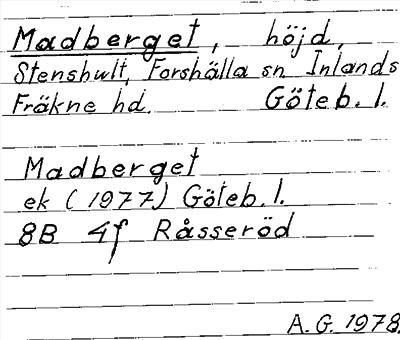 Madberget, höjd,
Stenshult, Forshälla sn Inlands
Fräkne hd. Göteb. l.
Madberget
ek (1977) Göteb. l.
8B 4f Råsseröd
A.G. 1978.